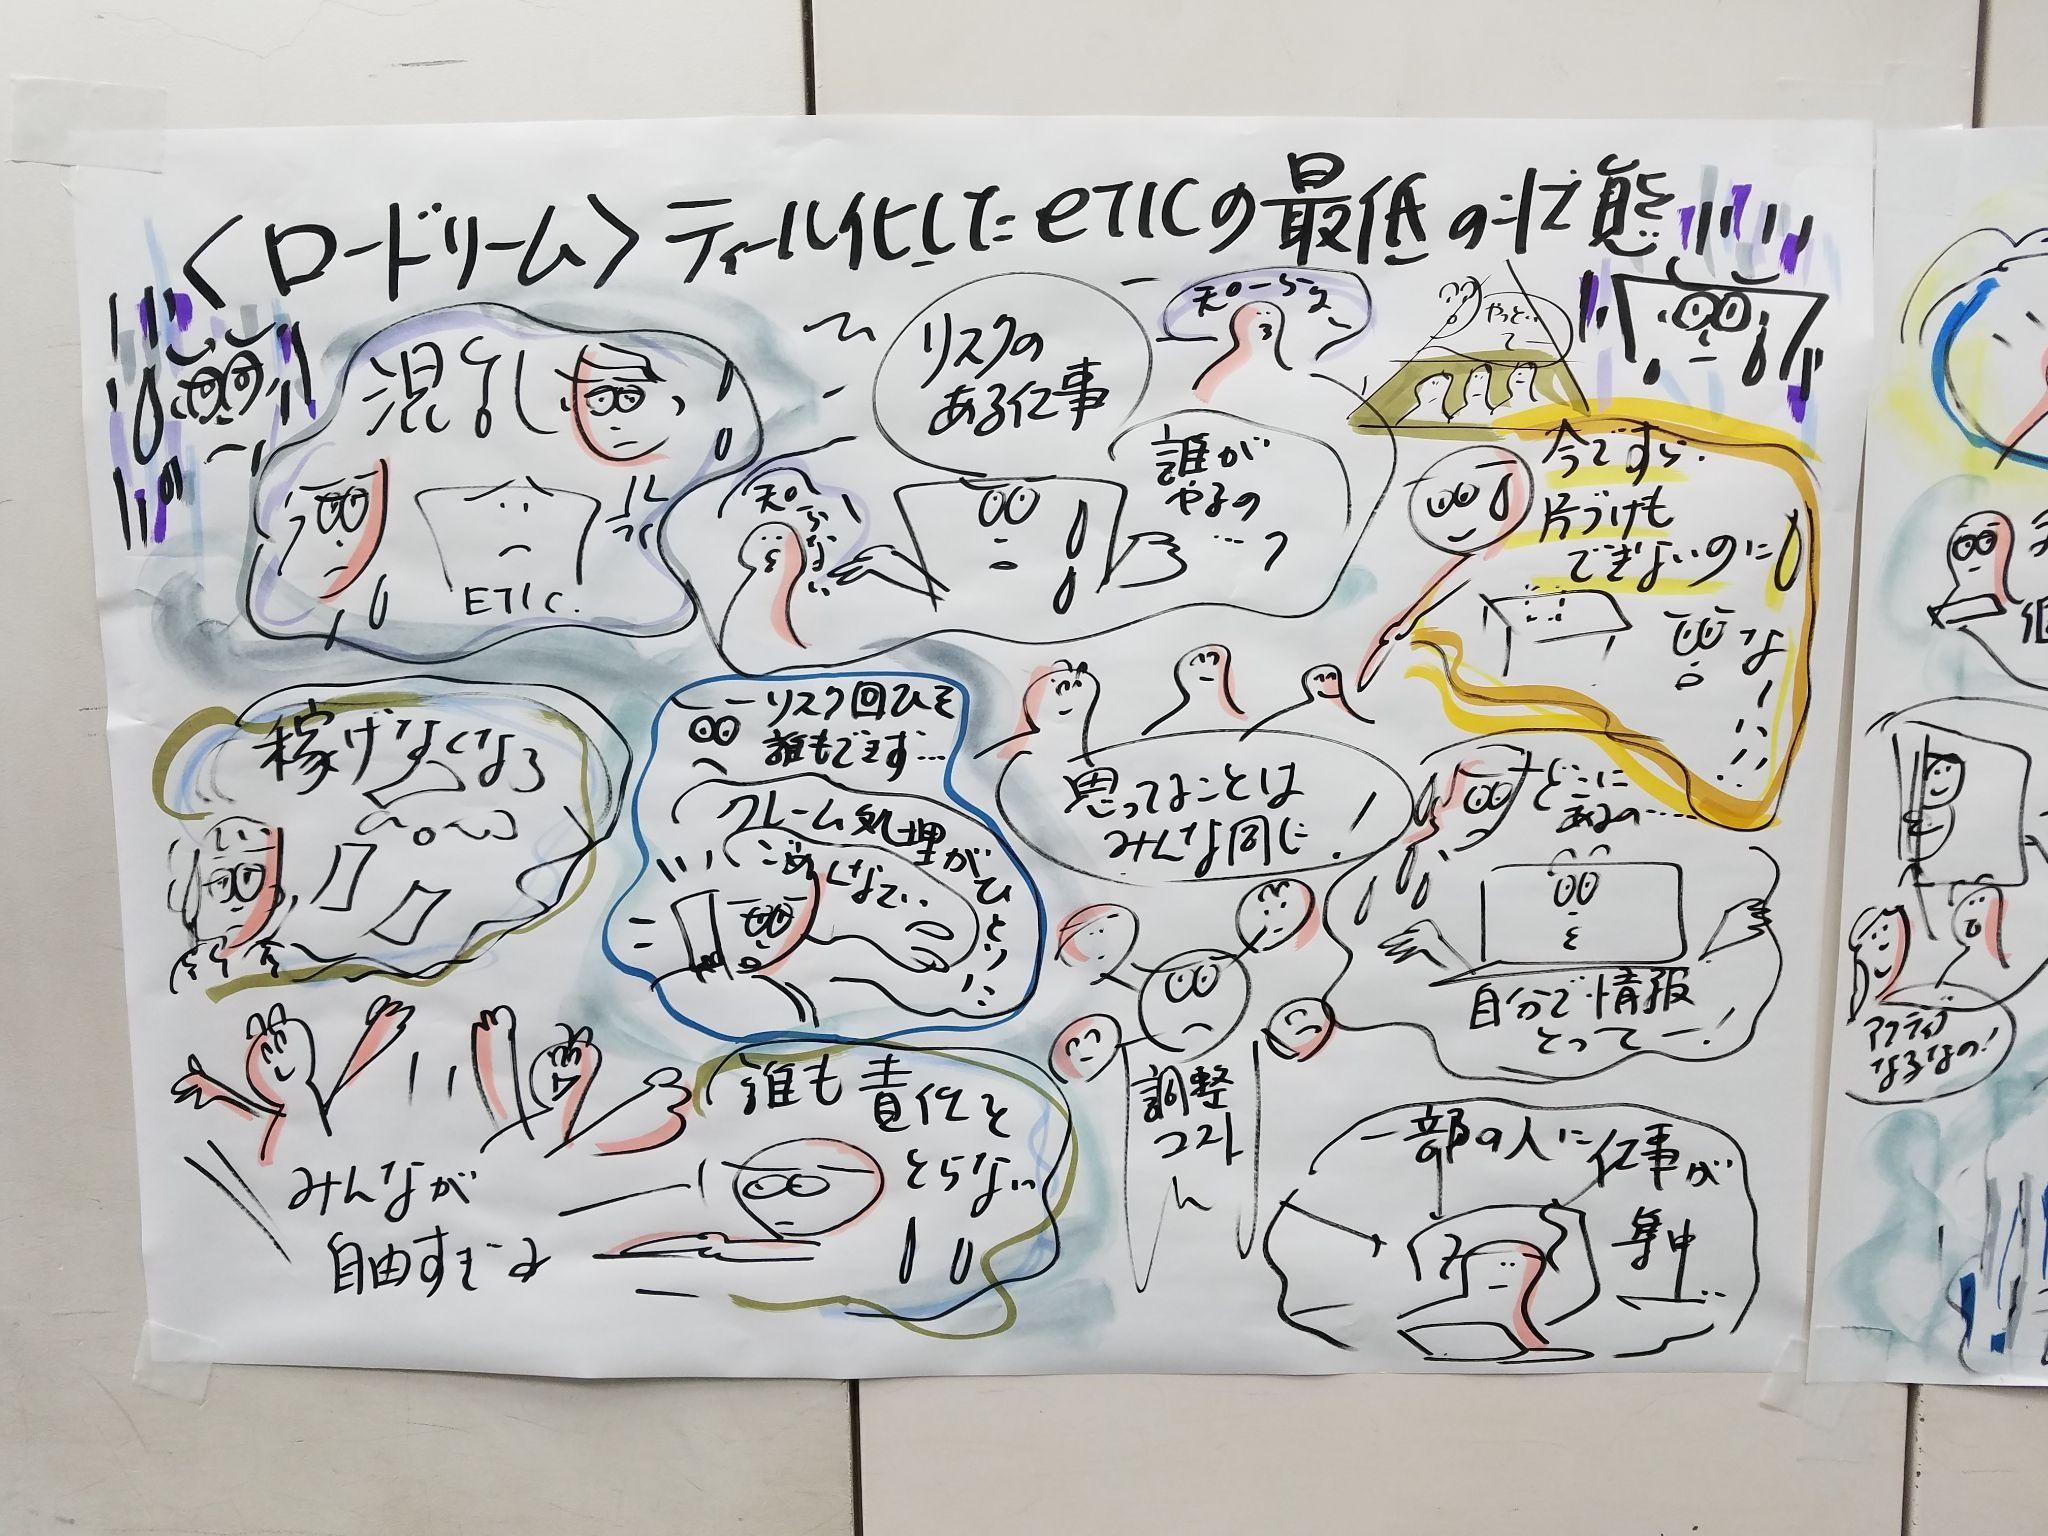 <ロードリーム>ティール化したeTICの最低の状態
混乱
ETIC.
リスクの
ある仕事
知ーらなーい
知らない
誰が
やるの
…?
やっといてー
今ですら
片づけも
できないのに
なー…
稼げなくなる
リスク回ひを
誰もできず…
クレーム処理が
ごめんなさい
思ってることは
みんな同じ!
どこに
あるの……
自分で情報
とってー!
みんなが
自由すぎる
誰も責任を
とらない
調整
コスト
一部の人に仕事が
集中
アクティブ
なるなの!